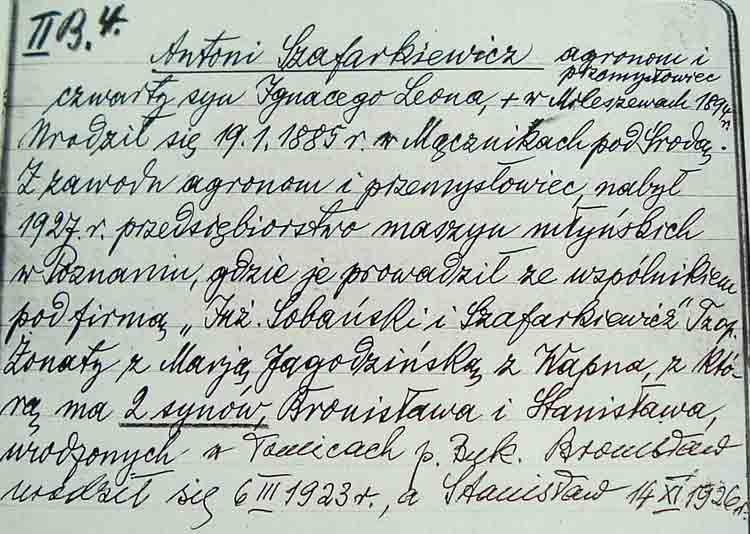 II B. 4.
Antoni Szafarkiewicz agronom i
przemysłowiec
czwarty syn Ignacego Leona, + w Mileszewach 1894 r.
Urodził się 19.1.1885 r w Mącznikach pod Środą.
Z zawodu agronom i przemysłowiec, nabył
1927. r. przedsiębiorstwo maszyn młyńskich
w Poznaniu, gdzie je prowadził ze wspólnikiem
pod firmą „Inż. Sobański i Szafarkiewicz" Tzop.
Żonaty z Marją Jagodzińską z Wapna, z któ-
rą ma 2 synów, Bronisława i Stanisława,
urodzonych w Tomicach p. Buk. Bronisław
urodził się 6 III 1923 r., a Stanisław 14 XI 1926 r.